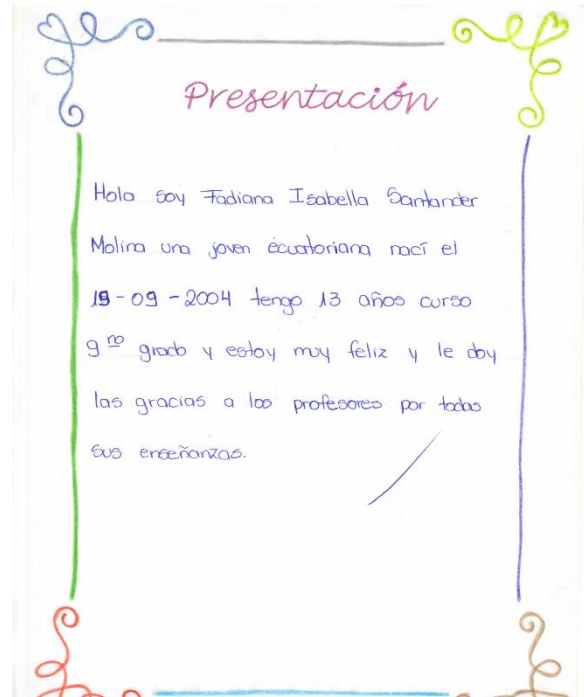 Presentación
Hola soy Fadiana Isabella Santander
Molina una joven écuatoriana nací el
19-09-2004 tengo 13 años curso
9 no grado y estoy muy feliz y le doy
las gracias a los profesores por todas
sus enseñanzas.